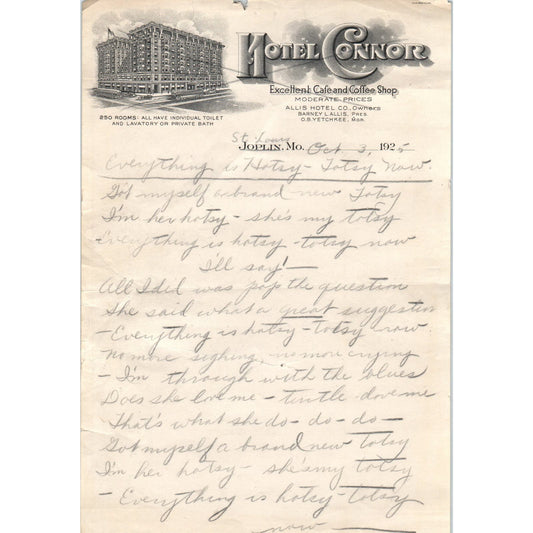 HOTEL CONNOR
Excellent Cafe and Coffee Shop
MODERATE PRICES
ALLIS HOTEL CO., OWNERS
BARNEY L. ALLIS, PRES.
O.B. YETCHKEE, MGR.
250 ROOMS: ALL HAVE INDIVIDUAL TOILET
AND LAVATORY OR PRIVATE BATH
St. Louis
JOPLIN, MO. Oct 3, 1925
Everything is Hotsy-Totsy Now.
Got myself a brand new Totsy
I'm her hotsy - she's my totsy
Everything is hotsy-totsy now
I'll say! —
All I did was pop the question
She said what a great suggestion
- Everything is hotsy-totsy now.
No more sighing, no more crying
- I'm through with the blues
Does she love me - turtle dove me
That's what she do-do-do-
Got myself a brand new totsy
I'm her hotsy - she's my totsy
- Everything is hotsy-totsy
now